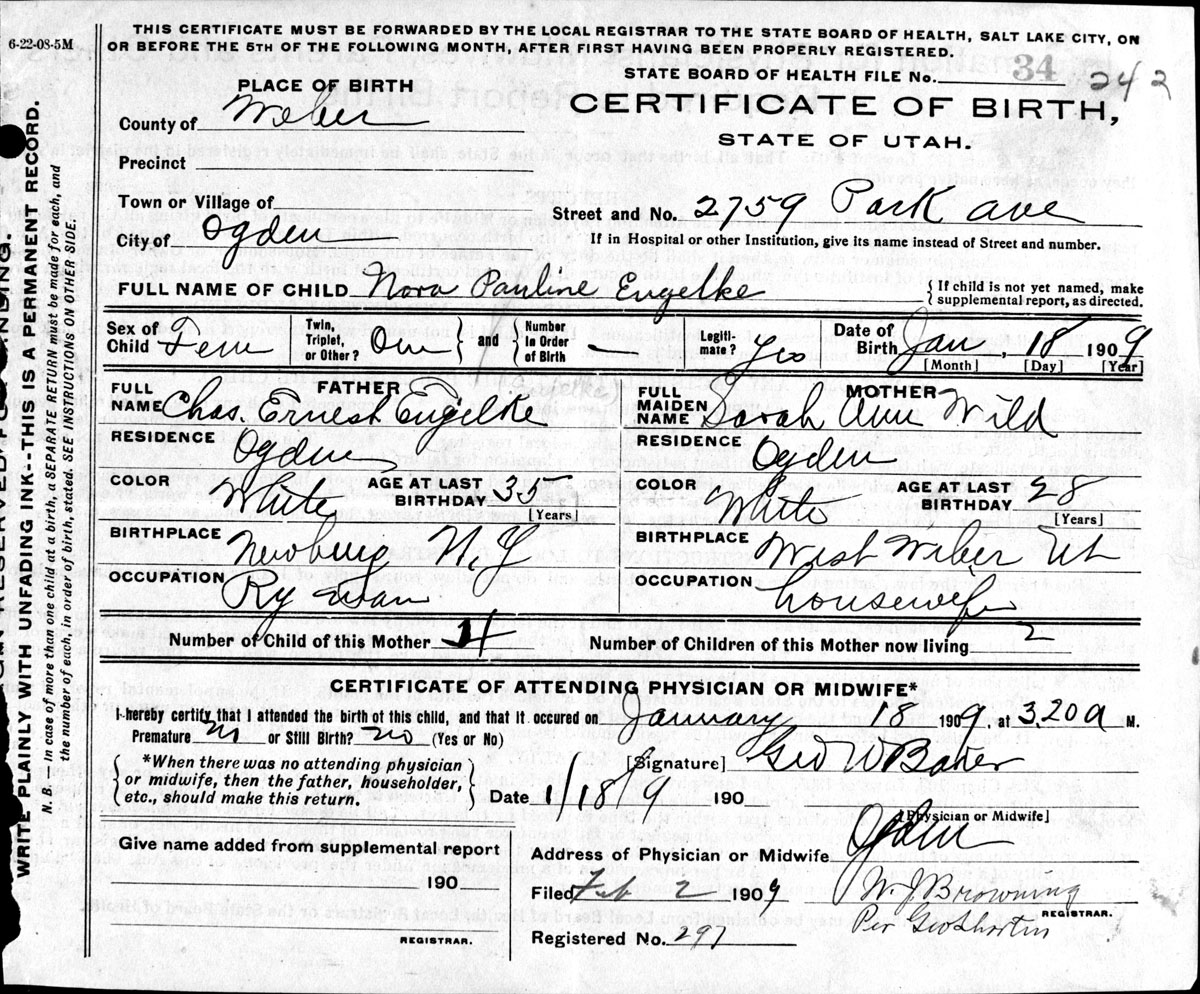 THIS CERTIFICATE MUST BE FORWARDED BY THE LOCAL REGISTRAR TO THE STATE BOARD OF HEALTH, SALT LAKE CITY, ON
OR BEFORE THE 5TH OF THE FOLLOWING MONTH, AFTER FIRST HAVING BEEN PROPERLY REGISTERED.
6-22-08-5M
STATE BOARD OF HEALTH FILE No. 34 242
PLACE OF BIRTH
CERTIFICATE OF BIRTH,
STATE OF UTAH.
County of Weber
Precinct
Town or Village of
Street and No. 2759 Park ave
City of Ogden
If in Hospital or other Institution, give its name instead of Street and number.
FULL NAME OF CHILD Nora Pauline Engelke { If child is not yet named, make supplemental report, as directed.
Sex of Child Fem Twin, Triplet, or Other? One } and { Number In Order of Birth – Legitimate? Yes Date of Birth Jan, 18 1909
[Month] [Day] [Year]
FATHER
FULL NAME Chas. Ernest Engelke
RESIDENCE Ogden
COLOR White AGE AT LAST BIRTHDAY 35
[Years]
BIRTHPLACE Newburg N.Y
OCCUPATION Ry man
MOTHER
FULL MAIDEN NAME Sarah Ann Wild
RESIDENCE Ogden
COLOR White AGE AT LAST BIRTHDAY 28
[Years]
BIRTHPLACE West Weber Ut
OCCUPATION housewife
Number of Child of this Mother 4 Number of Children of this Mother now living 2
CERTIFICATE OF ATTENDING PHYSICIAN OR MIDWIFE*
I hereby certify that I attended the birth of this child, and that it occured on January 18 1909, at 3.20 a M.
Premature no or Still Birth? no (Yes or No)
{ *When there was no attending physician or midwife, then the father, householder, etc., should make this return. }
[Signature] Geo W Baker
Date 1/18/9 190
[Physician or Midwife]
Give name added from supplemental report
190
REGISTRAR.
Address of Physician or Midwife Ogden
Filed Feb 2 1909 W. J. Browning
REGISTRAR.
Per Geo Shorten
Registered No. 297
WRITE PLAINLY WITH UNFADING INK--THIS IS A PERMANENT RECORD.
N. B. In case of more than one child at a birth, a SEPARATE RETURN must be made for each, and
the number of each, in order of birth, stated. SEE INSTRUCTIONS ON OTHER SIDE.